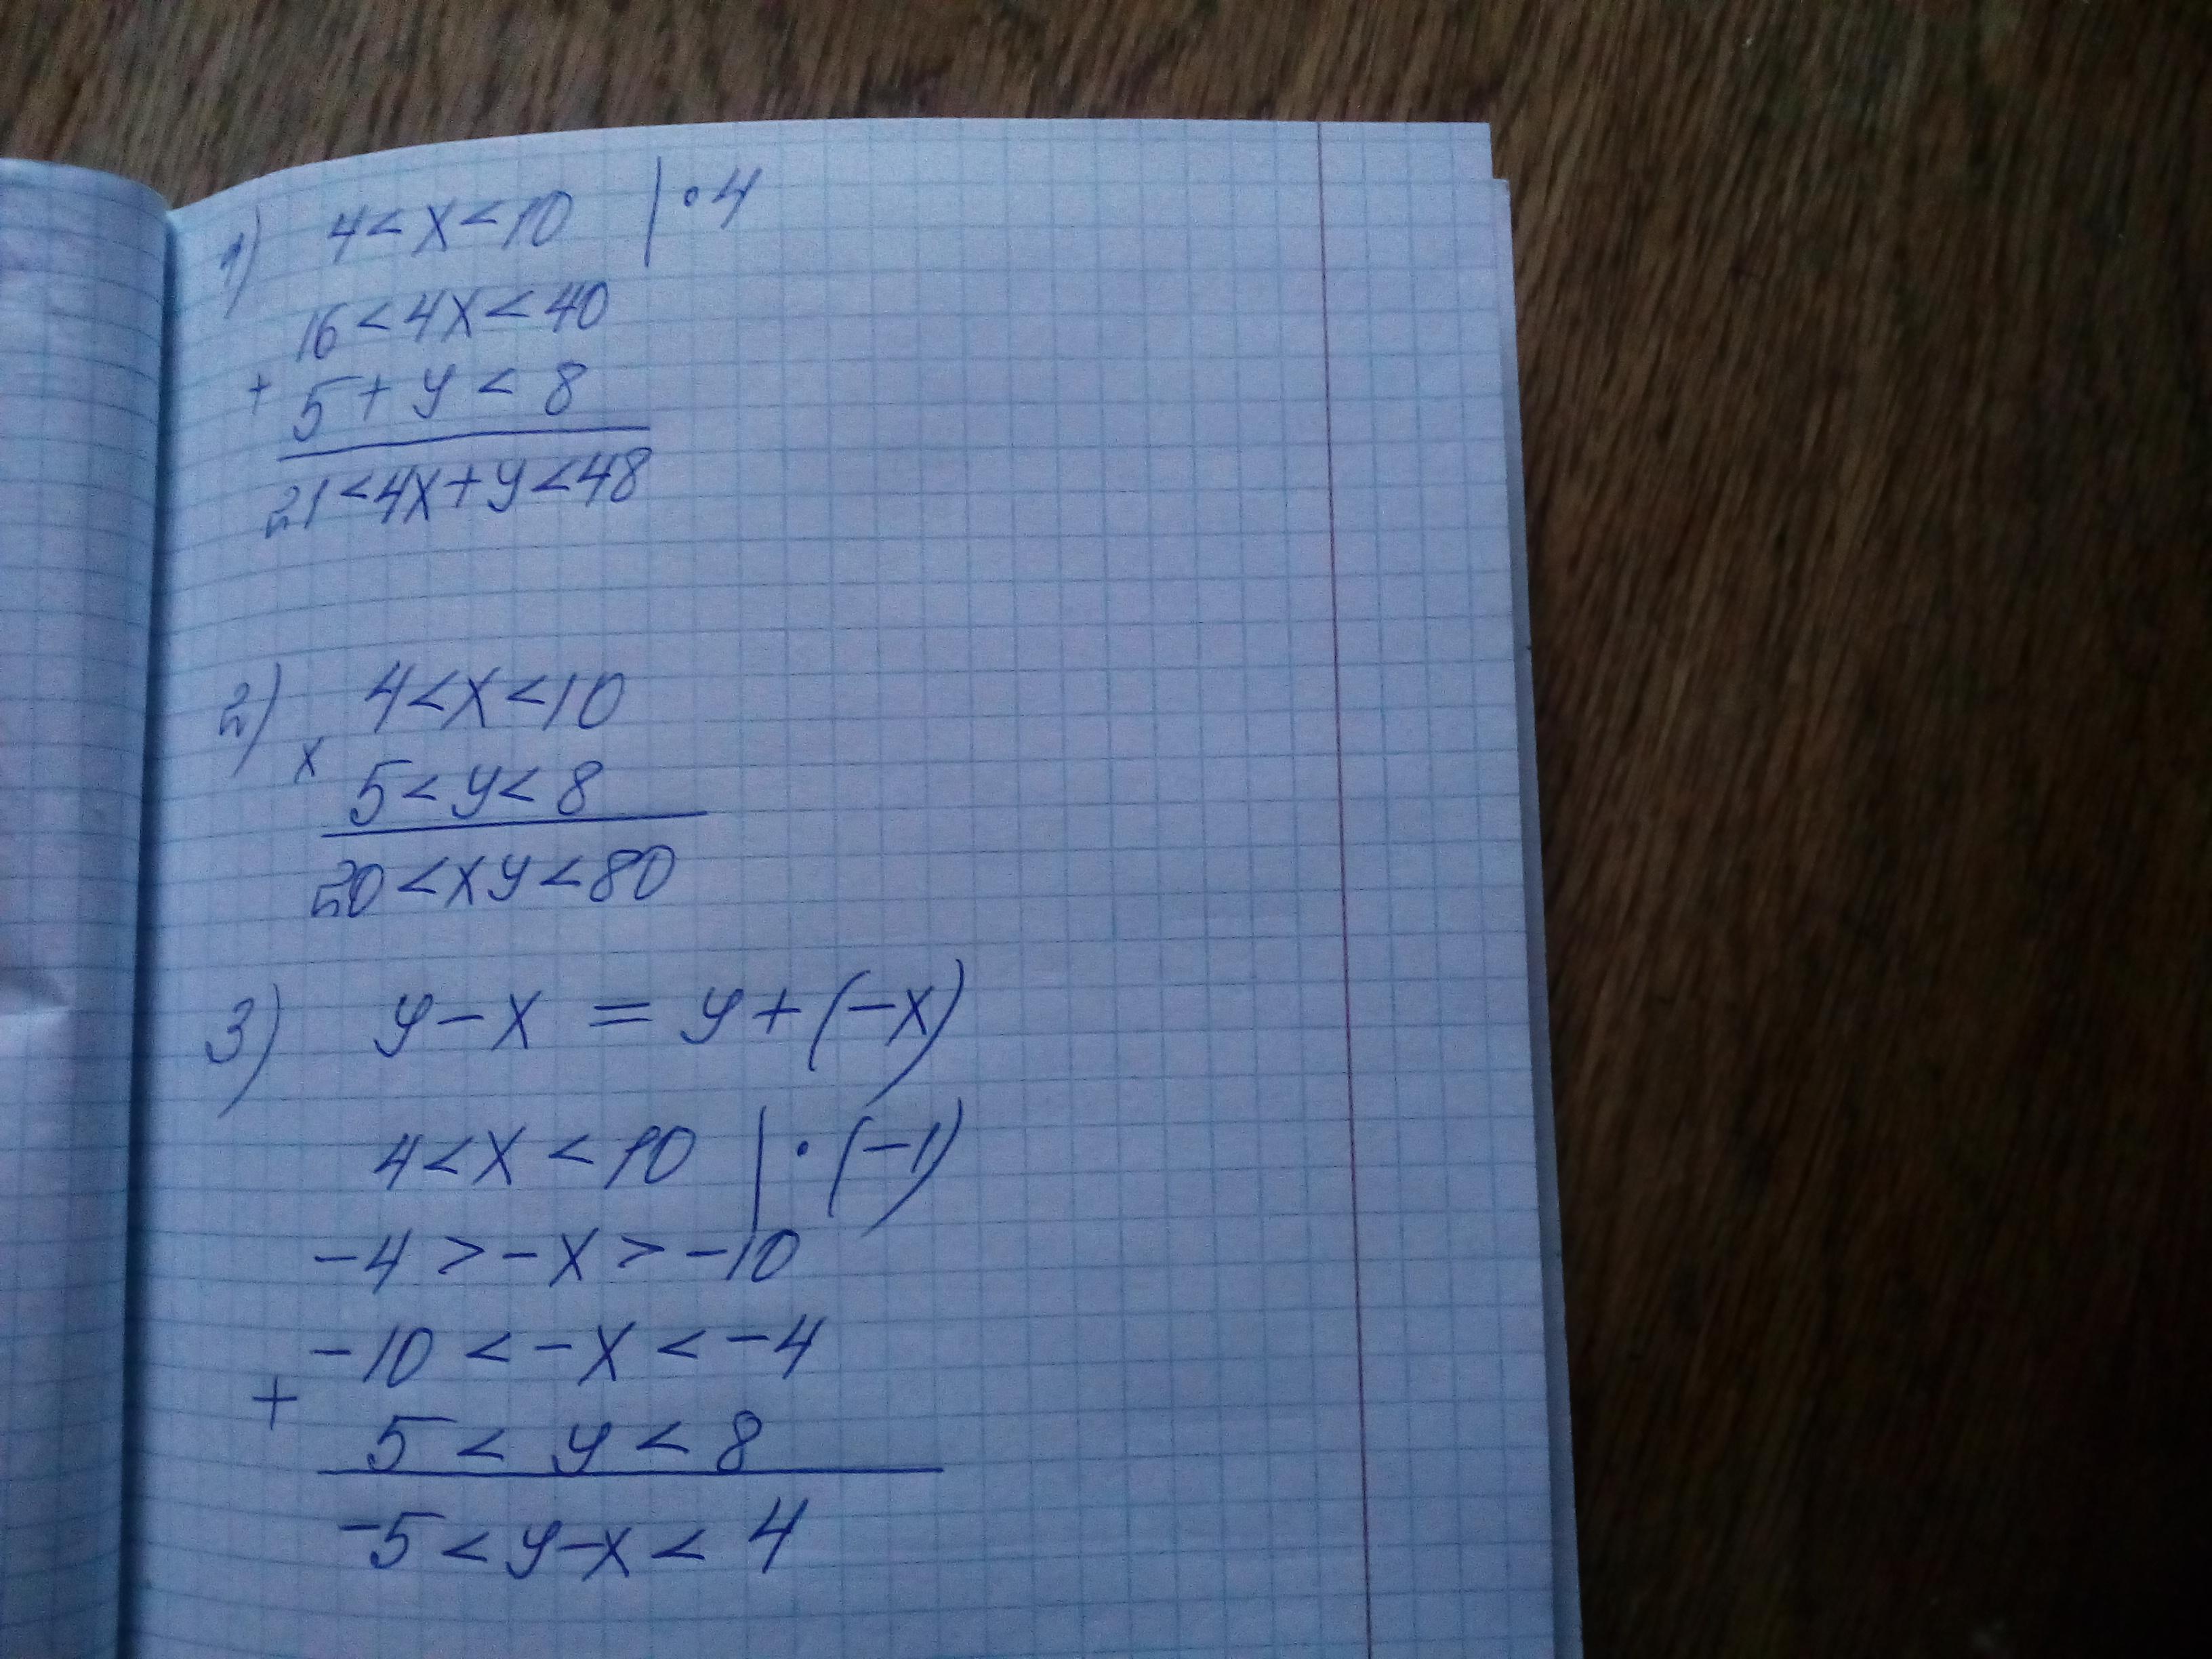 1) 4<x<10 | •4
16<4x<40
+ 5+y<8
21<4x+y<48
2) 4<x<10
x 5<y<8
20<xy<80
3) y-x = y+(-x)
4<x<10 | •(-1)
-4>-x>-10
-10<-x<-4
+ 5<y<8
-5<y-x<4